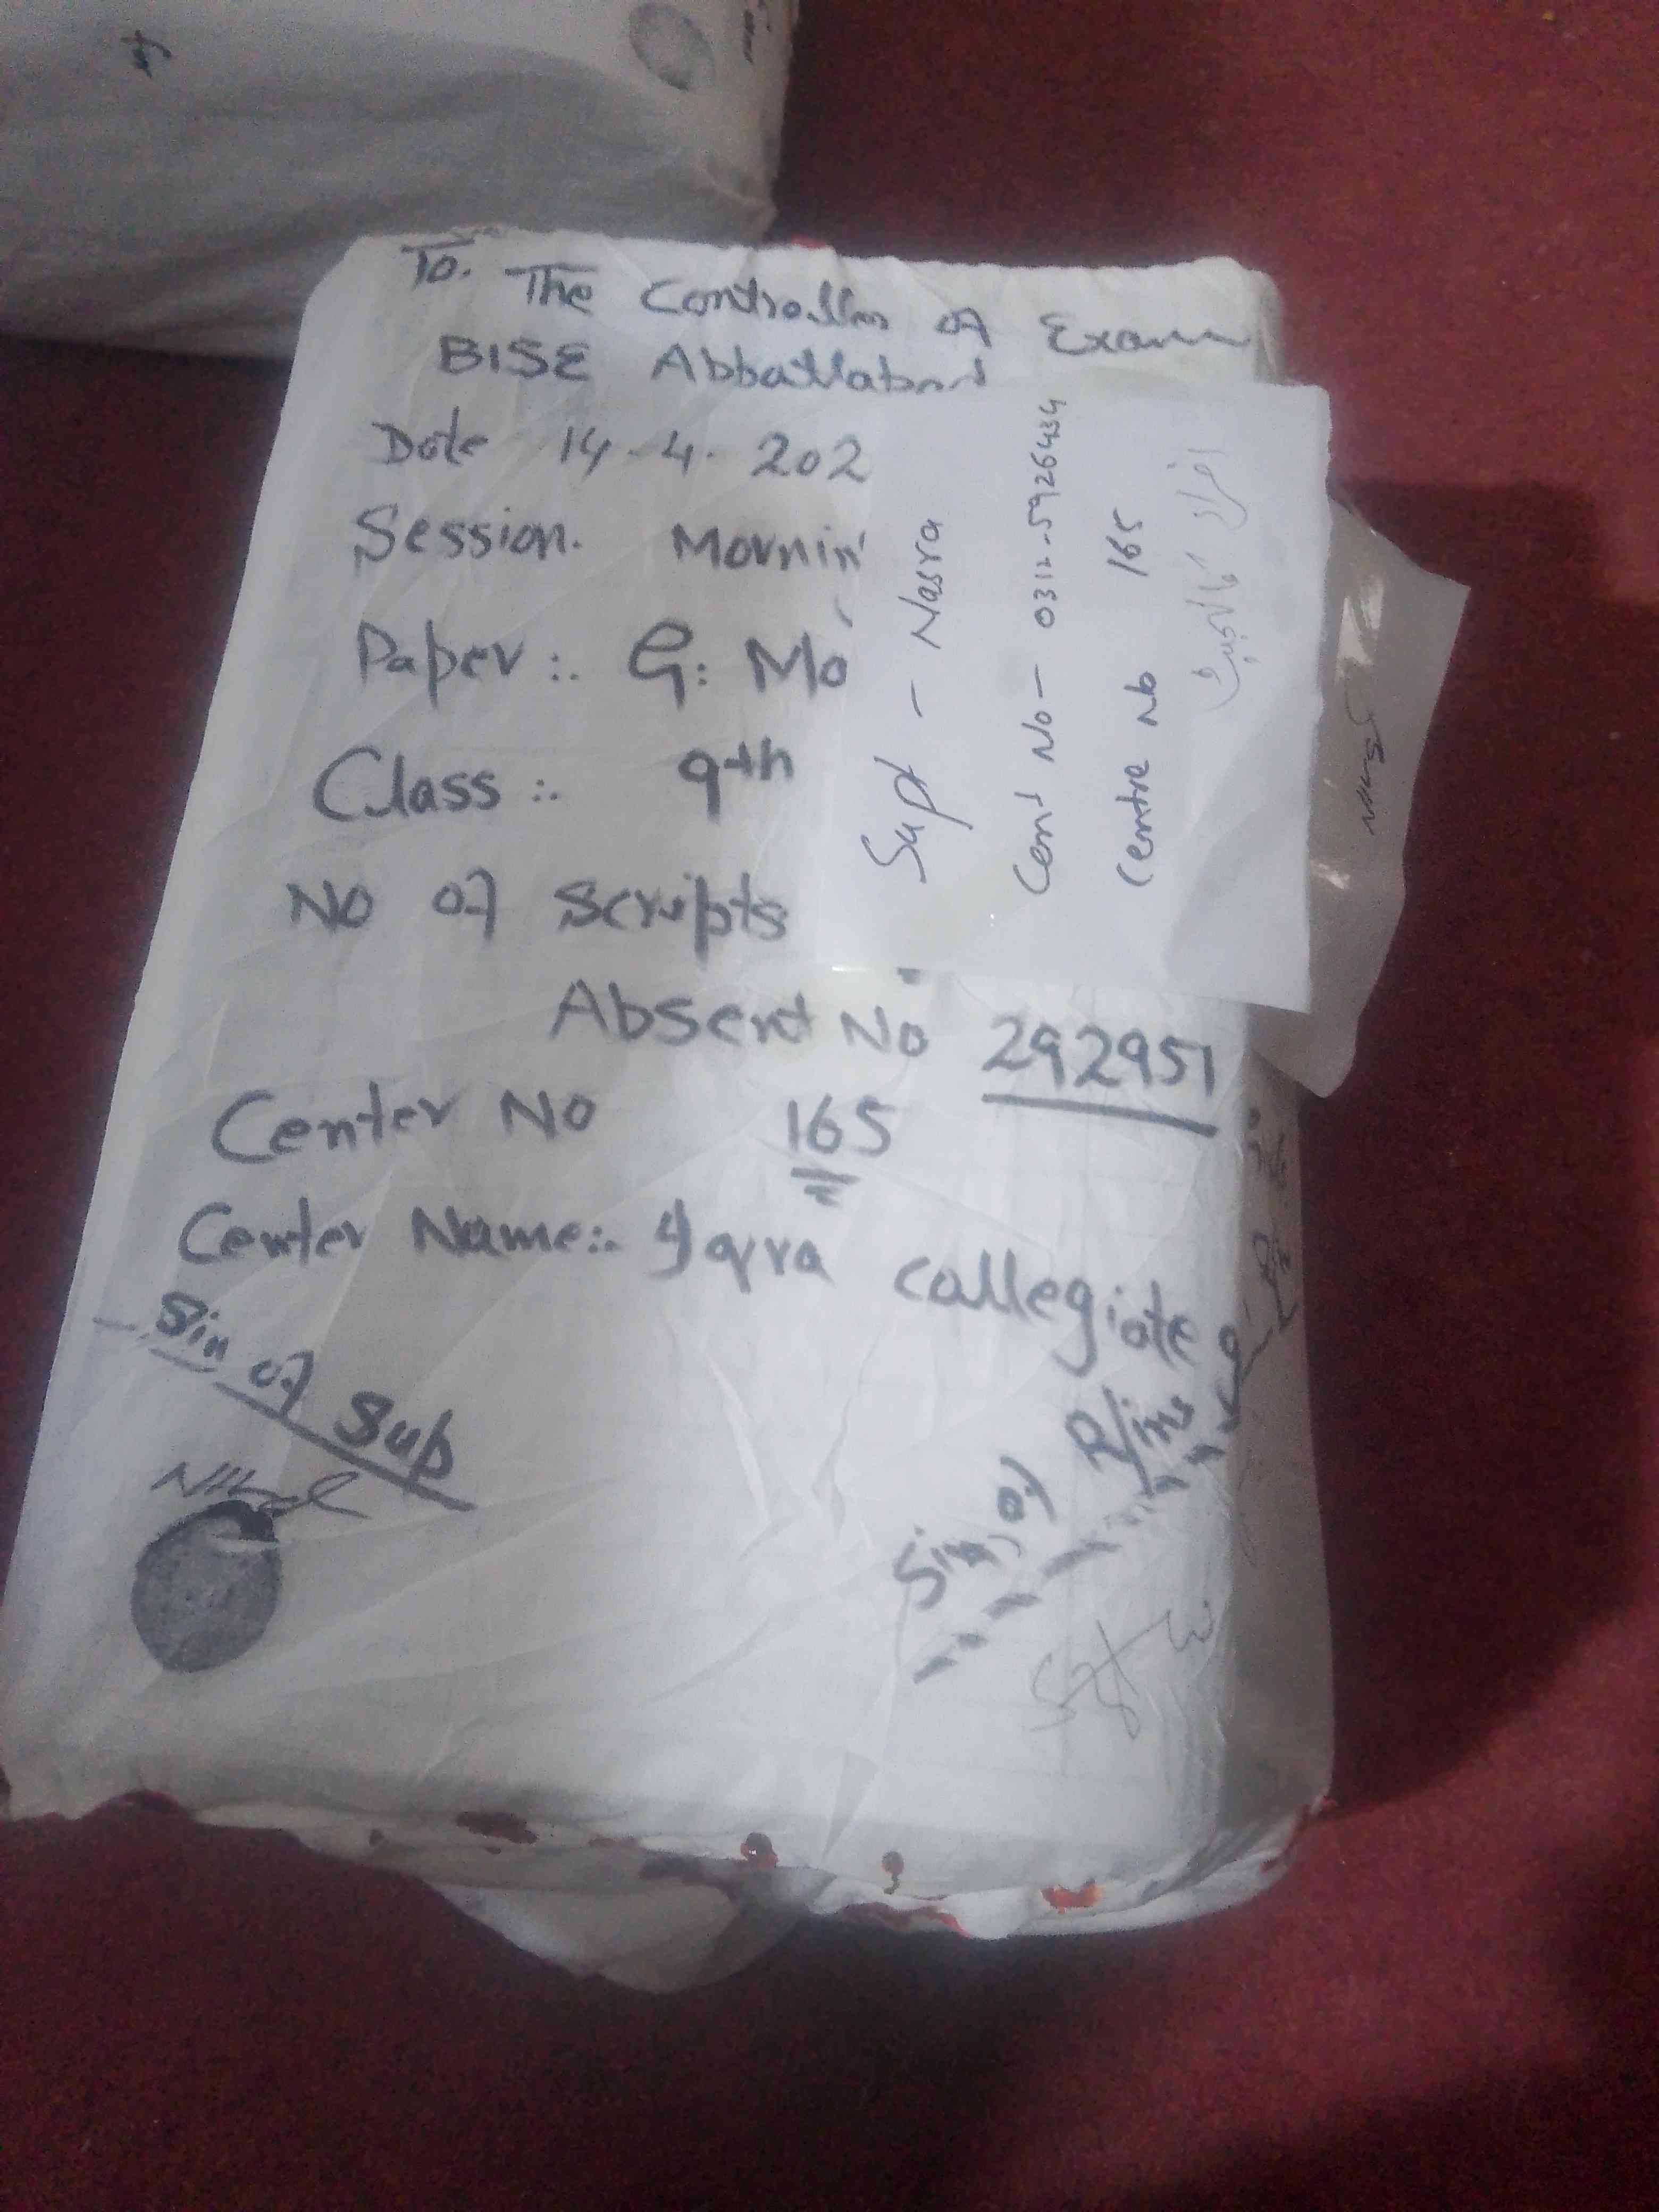 To. The Controller of Exam
BISE Abbattabad
Date 14-4-202
Session. Mornin
Paper:. G: Ma
Class:. 9th
No of Scripts
Absent No 292951
Center No 165
Center Name:. Iqra Collegiate
Sin of Sup
Sin of R/ins
Supt - Nasra
Cont No - 0312-5926434
Centre No 165
اقراء کالجیٹ